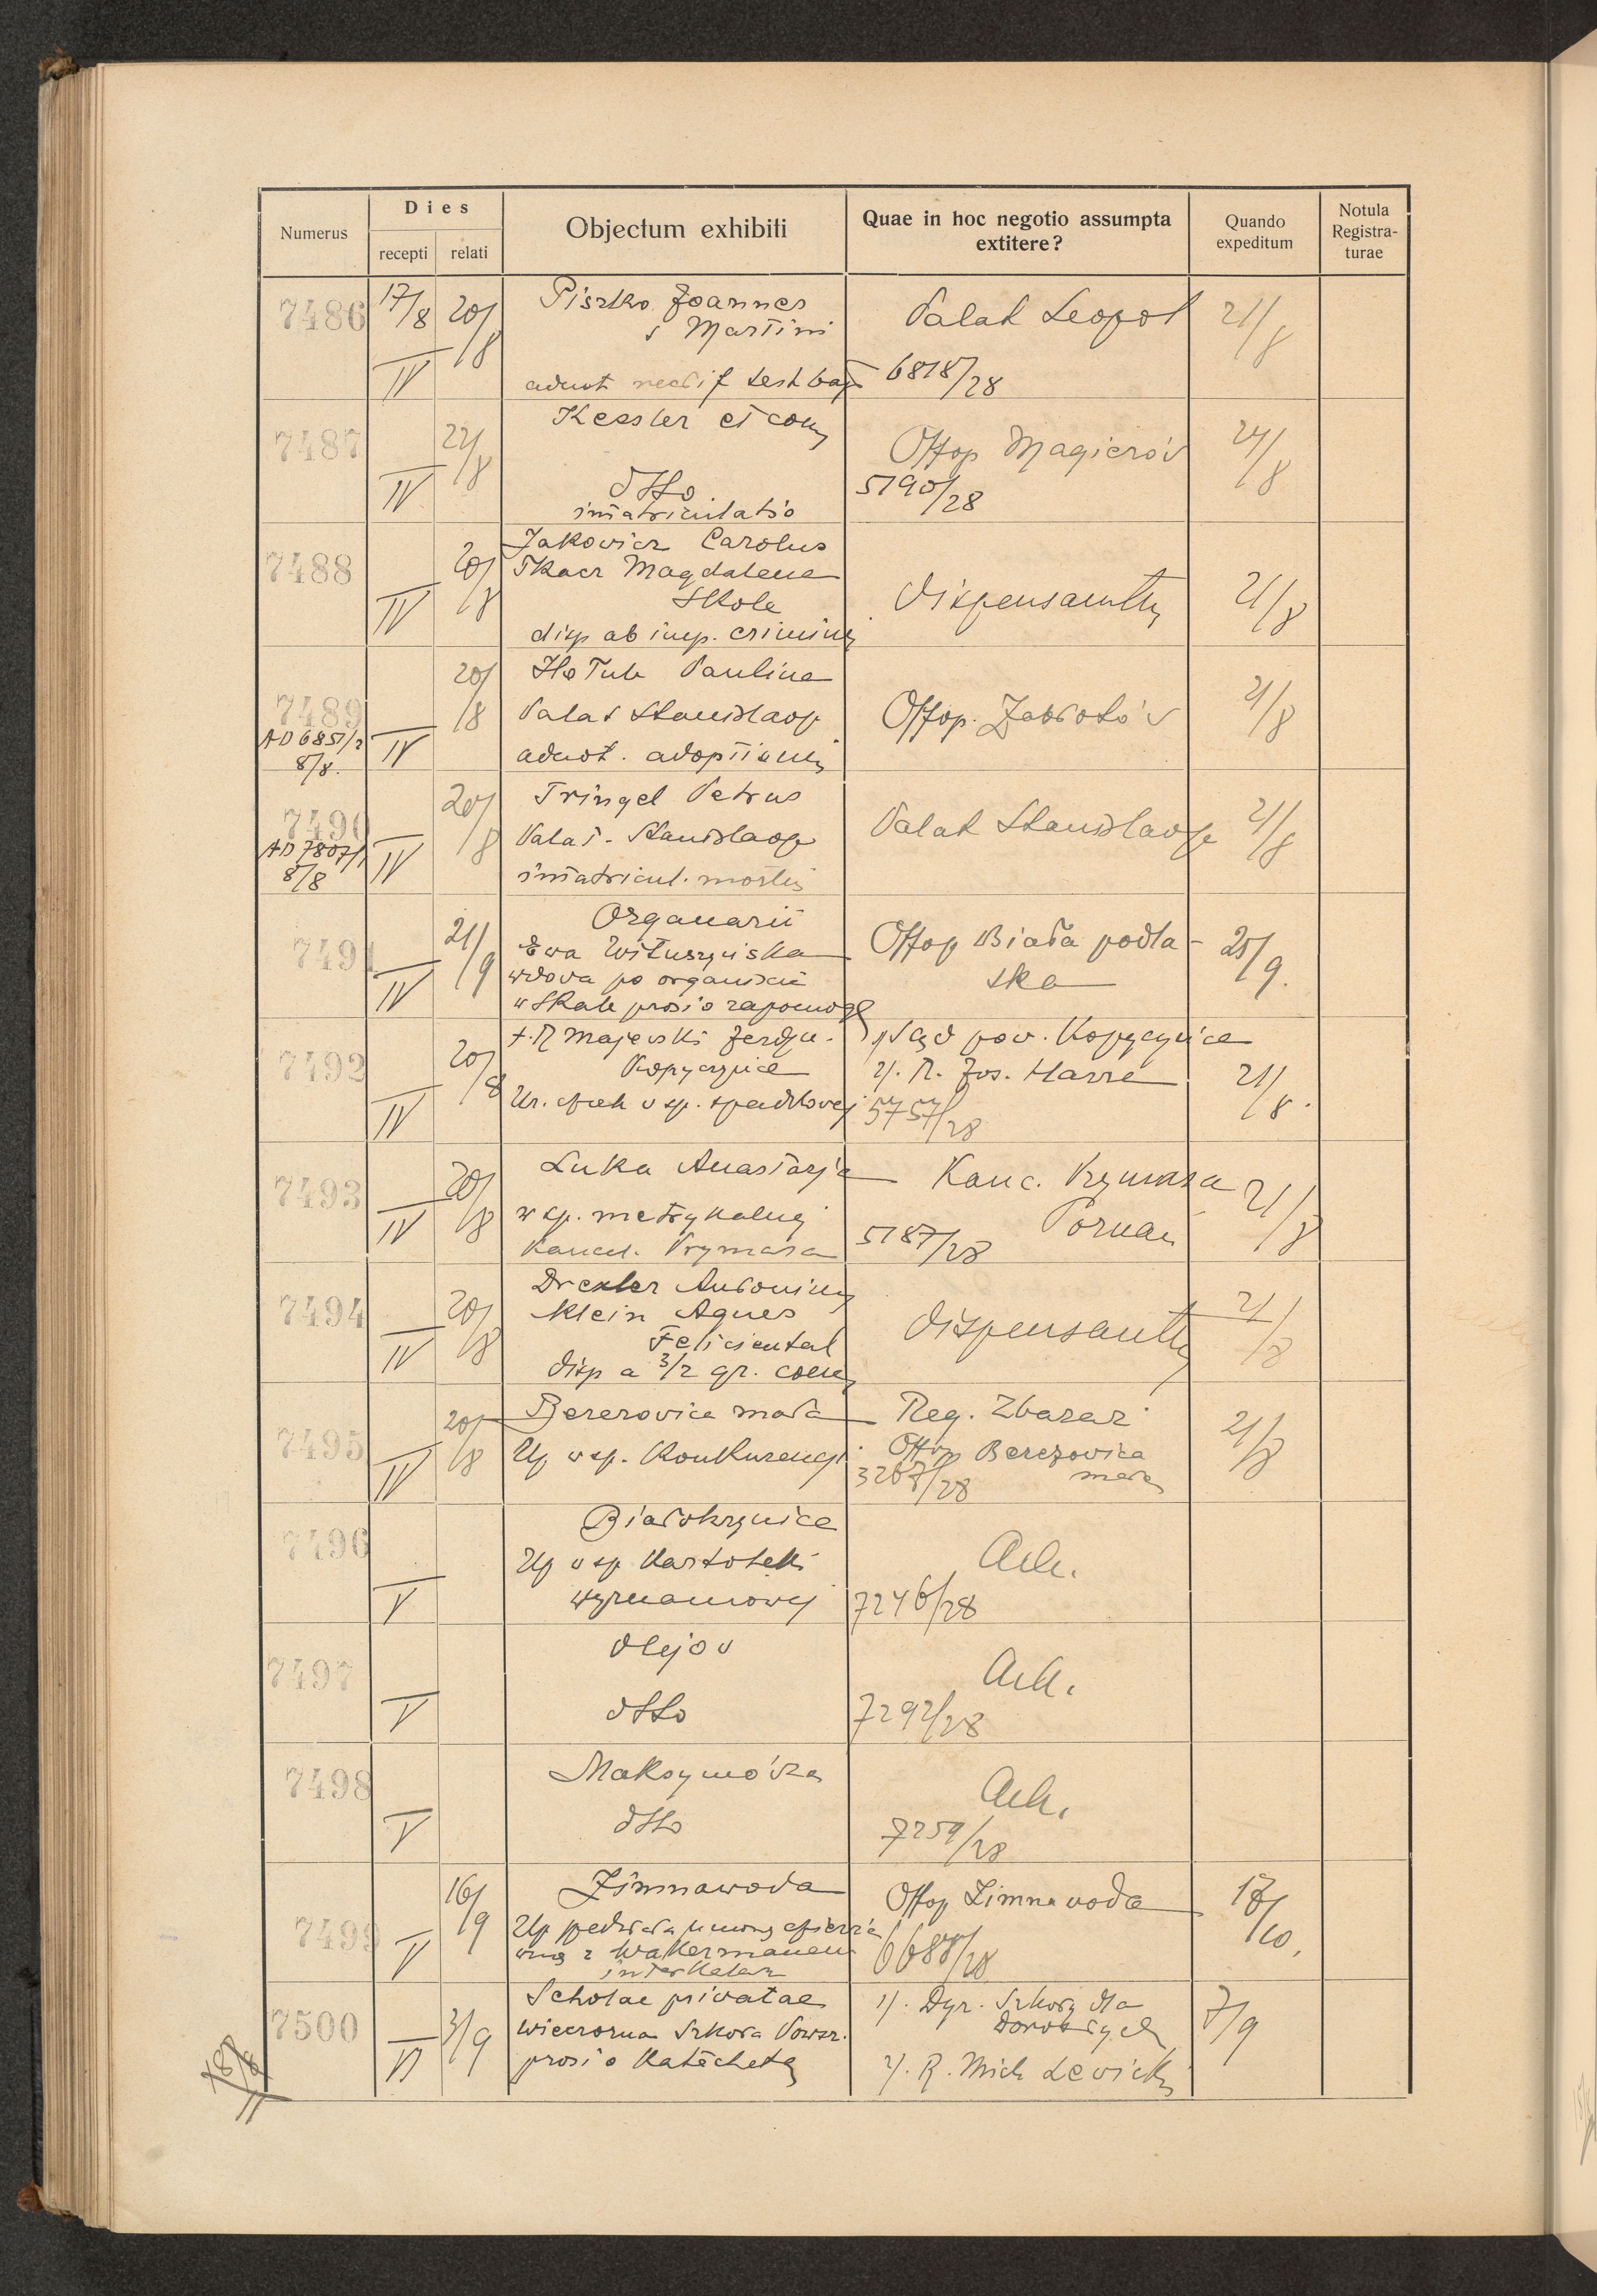 Numerus
Dies
recepti
relati
Objectum exhibiti
Quae in hoc negotio assumpta
extitere?
Quando
expeditum
Notula
Registra-
turae
7486
17/8
20/8
IV
Piszko Joannes
s Martini
adnot rectif test bapt
Palat Leopol
6818/28
21/8
7487
22/8
IV
Kessler et com
dtto
imatriculatio
Offop Magierów
5190/28
24/8
7488
20/8
IV
Jakovicz Carolus
Tkacz Magdalena
Skole
disp ab imp. criminis
Dispensantur
21/8
7489
AD 6851/2
8/8.
20/8
IV
Hołub Paulina
Palat Stanislaop
adnot. adoptionis
Offop. Zabłotów
21/8
7490
AD 7807/1
8/8
20/8
IV
Tringel Petrus
Palat. Stanislaop
imatricul. mortis
Palat Stanislaop
21/8
7491
21/9
IV
Organarii
Ewa Wituszyńska
wdova po organiście
w Skale prosi o zapomogę
Offop Biała podla-
ska
25/9.
7492
20/8
IV
+. R Majevski Ferdyn.
Kopyczyńce
Ur. opiek v sp. spadkovej
1/ Sąd pov. Kopyczyńce
2/. R. Jos. Harre
5757/28
21/8.
7493
20/8
IV
Luka Anastazja
w sp. metrykalnej
Kancel. Prymasa
Kanc. Prymasa
Poznań
5187/28
21/8
7494
20/8
IV
Drexler Antonius
Klein Agnes
Feliciental
Disp a 3/2 gr. cons
Dispensantur
21/8
7495
20/8
IV
Berezovica mała
Up w sp. Konkurencji
Reg. Zbaraz
Offop Berezovica
mała
3267/28
21/8
7496
V
Białokrynica
Up v sp Kartoteki
wyznaniowej
Ack.
7246/28
7497
V
Olejov
dtto
Ack.
7292/28
7498
V
Maksymówka
dtto
Ack.
7259/28
7499
16/9
V
Zimnawoda
z Wakermanem
Offop Zimnavoda
6688/28
18/10.
7500
3/9
VI
Scholae privatae
Wieczorna Szkoła Powsz.
prosi o Katechetę
1/. Dyr. Szkoły dla
Dorosłych
2/. R. Mich Levicki
7/9